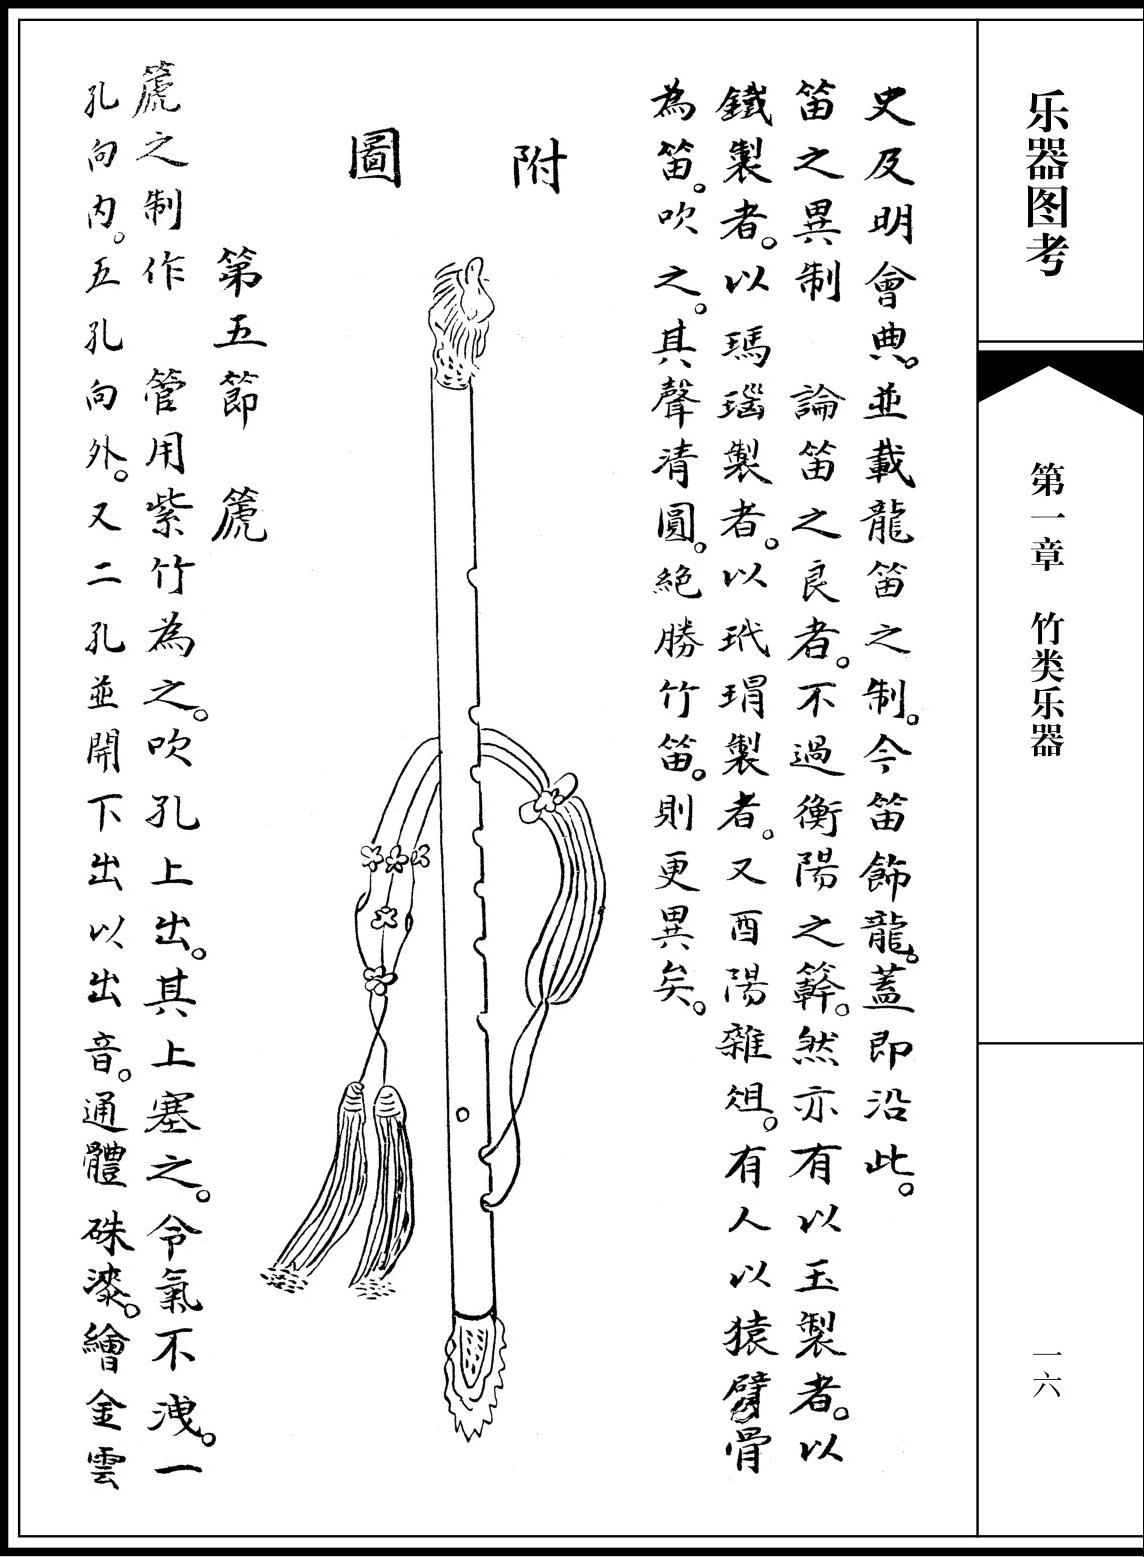 乐器图考
第一章 竹类乐器
一六
史及明會典。並載龍笛之制。今笛飾龍。蓋即沿此。
笛之異制 論笛之良者。不過衡陽之簳。然亦有以玉製者。以
鐵製者。以瑪瑙製者。以玳瑁製者。又酉陽雜俎。有人以猿臂骨
為笛。吹之。其聲清圓。絕勝竹笛。則更異矣。
附圖
第五節 箎
箎之制作 管用紫竹為之。吹孔上出。其上塞之。令氣不洩。一
孔向內。五孔向外。又二孔並開下出以出音。通體硃漆。繪金雲